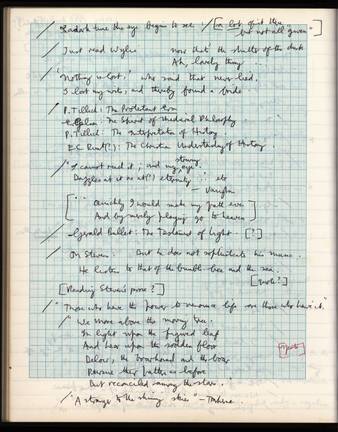 In a dark time the eye begins to see : [a lot of it then, but not all given"]
Just read Wylie now that the shutters of the dark
Ah, lovely thing ...
"Nothing is lost," who said that never lied.
I lost my wits, and thereby found a bride
P. Tillich : The Protestant Era
The Spirit of Medieval Philosophy
P. Tillich : The Interpretation of History
E.C. Rust(?) : The Christian Understanding of History.
"I cannot reach it ; and my striving eye
Dazzles at it as at(?) eternity ... etc
– Vaughan
[ "... Quickly I would make my path even
And by merely playing go to heaven ]
– Gerald Bullett : The Testament of Light [?]
On Stevens : But he does not sophisticate his music.
He listens to that of the bumble-bee and the sea.
[quote?]
[Reading Stevens's prose?]
"Those who have the power to renounce life are those who have it."
We move above the moving tree
In light upon the figured leaf
And hear upon the sodden floor
Below, the boarhound and the boar
Pursue their pattern as before
But reconciled among the stars.
"A stranger to the shining skies" –